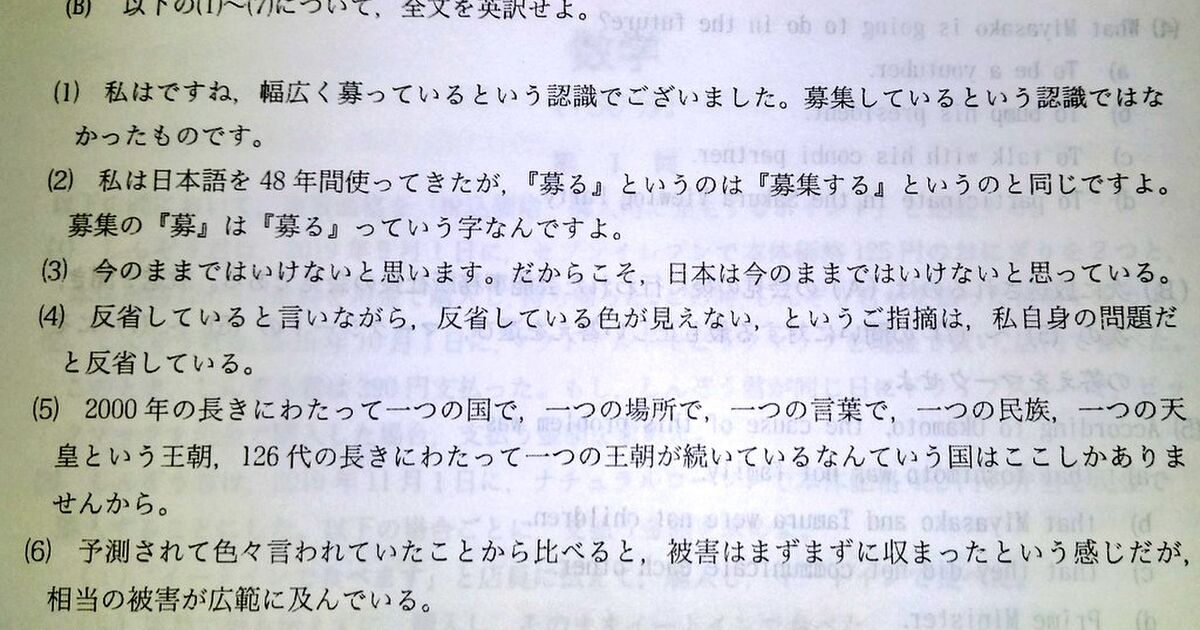 (B) 以下の(1)~(7)について，全文を英訳せよ。
(1) 私はですね，幅広く募っているという認識でございました。募集しているという認識ではな
かったものです。
(2) 私は日本語を 48 年間使ってきたが，『募る』というのは『募集する』というのと同じですよ。
募集の『募』は『募る』っていう字なんですよ。
(3) 今のままではいけないと思います。だからこそ，日本は今のままではいけないと思っている。
(4) 反省していると言いながら，反省している色が見えない，というご指摘は，私自身の問題だ
と反省している。
(5) 2000 年の長きにわたって一つの国で，一つの場所で，一つの言葉で，一つの民族，一つの天
皇という王朝，126 代の長きにわたって一つの王朝が続いているなんていう国はここしかありま
せんから。
(6) 予測されて色々言われていたことから比べると，被害はまずまずに収まったという感じだが，
相当の被害が広範に及んでいる。